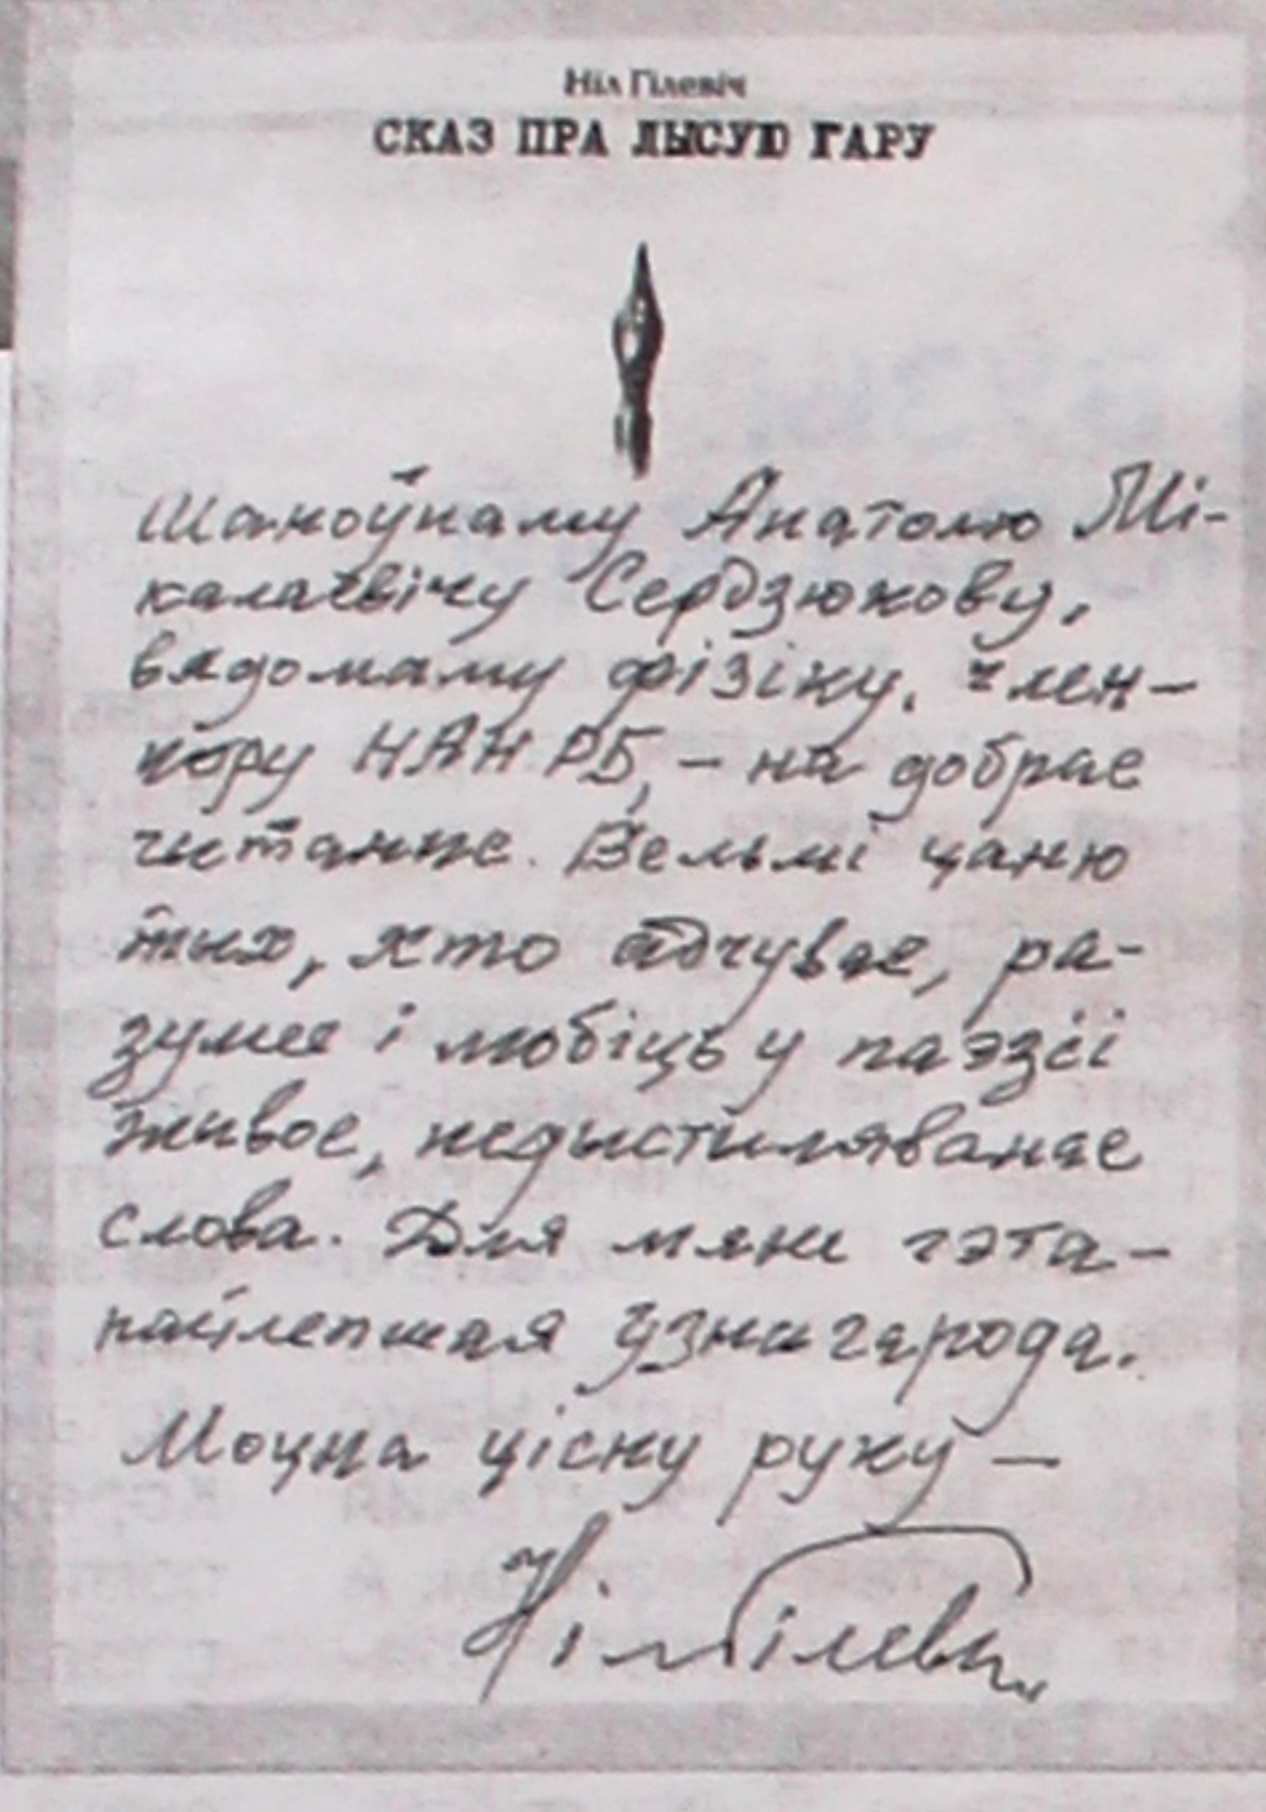 Ніл Гілевіч
СКАЗ ПРА ЛЫСУЮ ГАРУ
Шаноўнаму Анатолю Мі-
калаевічу Сердзюкову,
вядомаму фізіку, член-
кору НАН РБ, – на добрае
чытанне. Вельмі цаню
тых, хто адчувае, ра-
зумее і любіць у паэзіі
жывое, недыстыляванае
слова. Для мяне гэта –
найлепшая ўзнагарода.
Моцна цісну руку –
Ніл Гілевіч